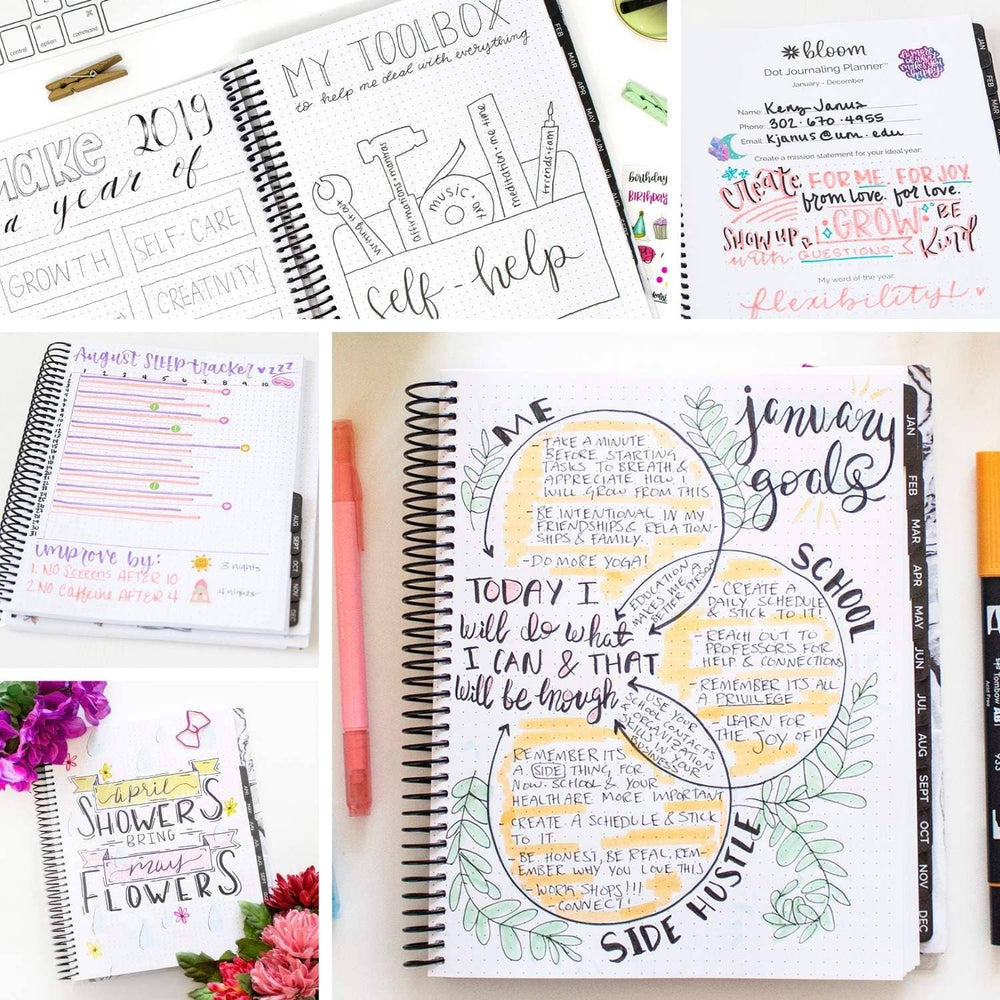 control
option
command
make 2019
a year of
GROWTH
SELF-CARE
CREATIVITY
MY TOOLBOX
to help me deal with everything
writing it out
affirmations+mantras
music
meditation+me time
friends+fam
self-help
FEB
MAR
APR
MAY
JUN
birthday
BIRTHDAY
bloom
Dot Journaling Planner™
January - December
Name: Keny Janus
Phone: 302·670·4955
Email: Kjanus@um.edu
Create a mission statement for your ideal year:
Create FOR ME. FOR JOY.
from love. for love.
SHOW UP & GROW. BE
with QUESTIONS. Kind
My word of the year:
flexibility!
JAN
FEB
MAR
August SLEEP tracker zzz
1 2 3 4 5 6 7 8 9 10
improve by:
1. NO Screens AFTER 10
3 nights
2. NO Caffeine AFTER 4
4 nights
AUG
SEPT
OCT
NOV
april
SHOWERS
BRING
may
FLOWERS
january
goals
ME
- TAKE A MINUTE
BEFORE STARTING
TASKS TO BREATH &
APPRECIATE HOW I
WILL GROW FROM THIS.
- BE INTENTIONAL IN MY
FRIENDSHIPS & RELATION-
SHIPS & FAMILY.
- DO MORE YOGA!
EDUCATION
MAKES ME A
BETTER PERSON
TODAY I
will do what
I CAN & THAT
will be Enough
SCHOOL
- CREATE A
DAILY SCHEDULE
& STICK TO IT!
- REACH OUT TO
PROFESSORS FOR
HELP & CONNECTIONS
- REMEMBER ITS ALL
A PRIVILEGE
- LEARN FOR
THE JOY OF IT
USE YOUR
SCHOOL CONTACTS
& ORGANIZATION
SKILLS IN
YOUR BUSINESS
REMEMBER ITS
A SIDE THING FOR
NOW. SCHOOL & YOUR
HEALTH ARE MORE IMPORTANT
CREATE A SCHEDULE & STICK
TO IT.
- BE HONEST, BE REAL, REM-
EMBER WHY YOU LOVE THIS
- WORK SHOPS!!!
- CONNECT!
SIDE HUSTLE
JAN
FEB
MAR
APR
MAY
JUN
JUL
AUG
SEPT
OCT
NOV
DEC
Tombow
ABT
933